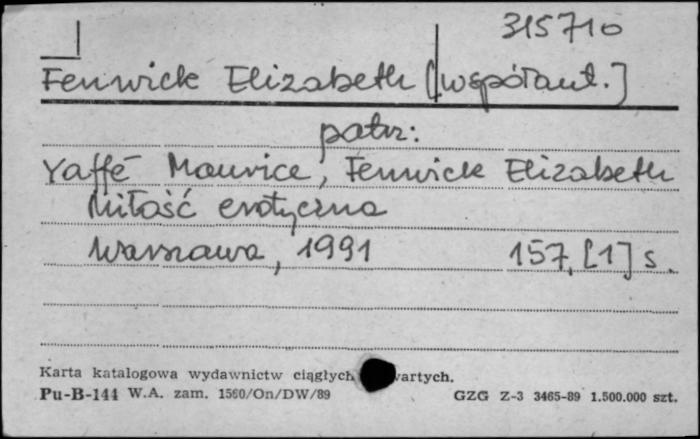 315710
Fenwick Elizabeth [współaut.]
patrz:
Yaffé Maurice, Fenwick Elizabeth
Miłość erotyczna
Warszawa, 1991 157, [1] s.
Karta katalogowa wydawnictw ciągłych wartych.
Pu-B-144 W.A. zam. 1560/On/DW/89 GZG Z-3 3465-89 1.500.000 szt.